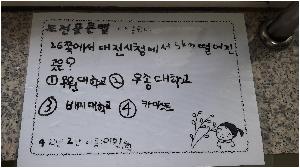 도전골든벨
26쪽에서 대전시청에서 5km 떨어진
곳은?
① 우원대학교 ② 우송대학교
③ 배재대학교 ④ 카이스트
4학년 2반 이름: